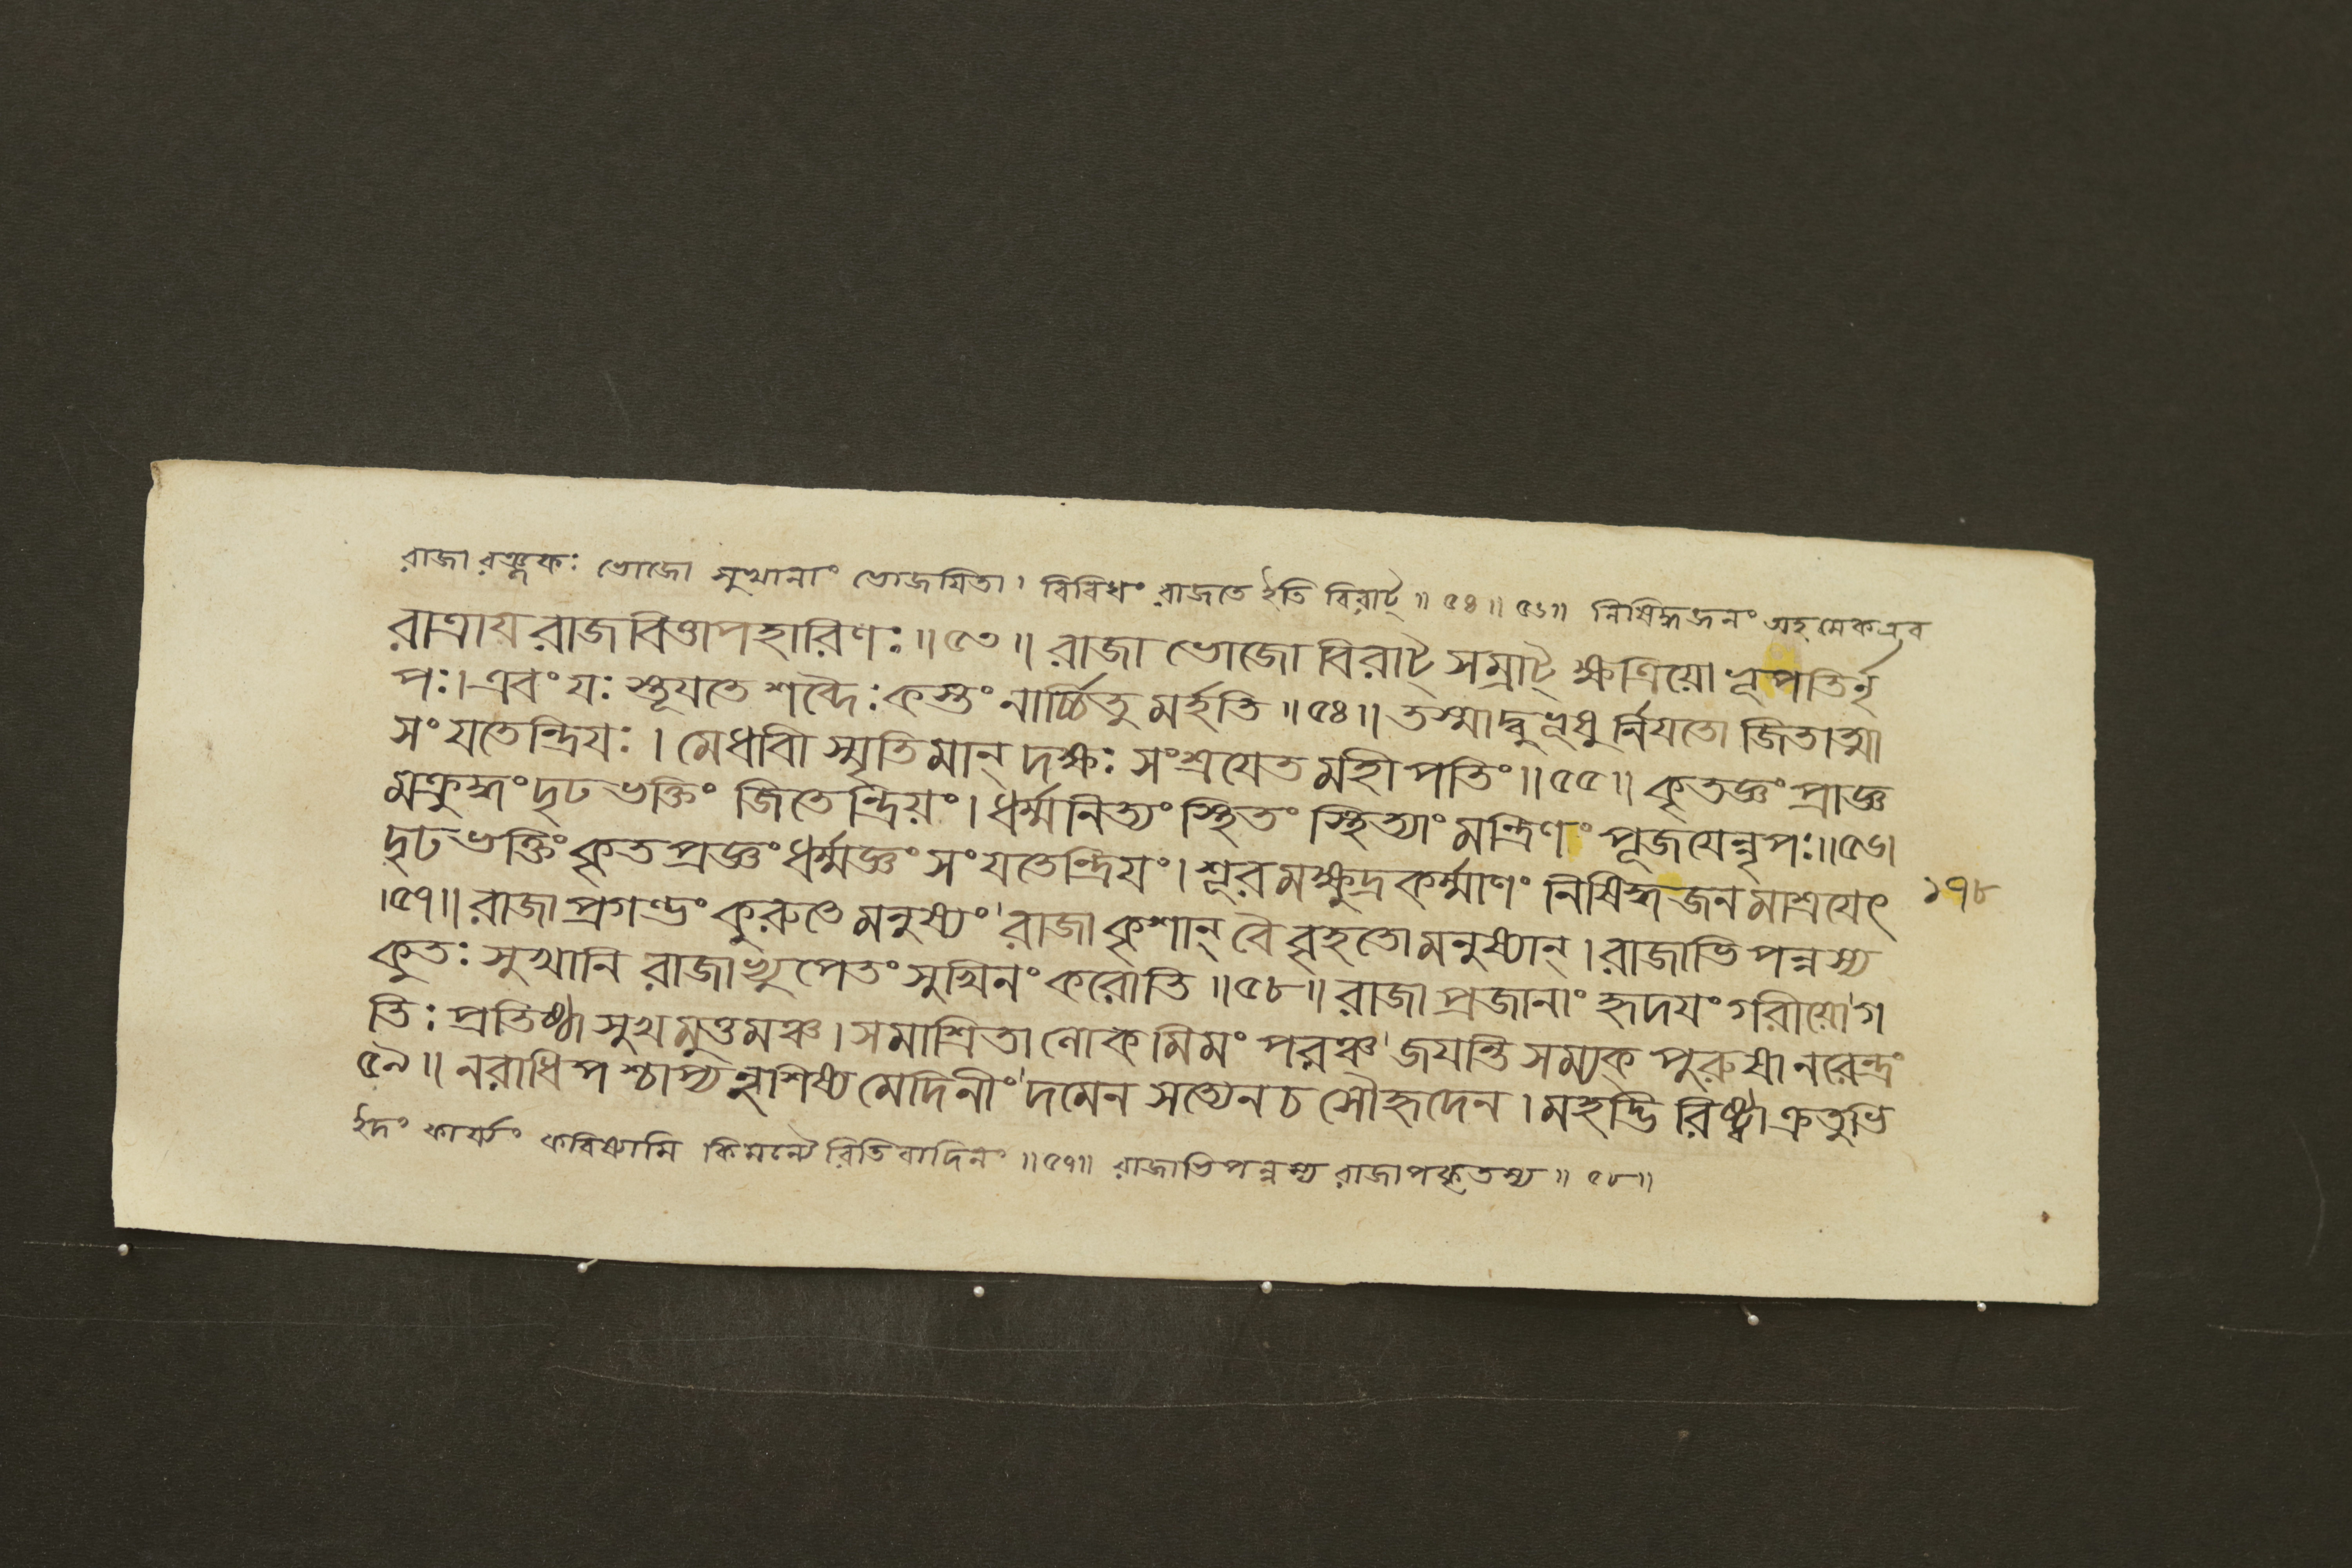 রাজা রঞ্জকঃ ভোজো সুখানাং ভোজযিতা। বিবিধং রাজতে ইতি বিরাট্॥ ৫৪॥ ৫৬॥ নিষিদ্ধজনং অহমেকএব
রাত্রায রাজবিত্তাপহারিণঃ॥ ৫৩॥ রাজা ভোজো বিরাট্ সম্রাট্ ক্ষত্রিয়ো ভূপতির্নৃ
পঃ। এবং যঃ স্তূযতে শব্দৈঃ কস্তং নার্চ্চিতুমর্হতি॥ ৫৪॥ তস্মাদ্বুভূষুর্নিযতো জিতাত্মা
সংযতেন্দ্রিযঃ। মেধাবী স্মৃতিমান্ দক্ষঃ সংশ্রযেত মহীপতিং॥ ৫৫॥ কৃতজ্ঞং প্রাজ্ঞ
মক্রুদ্ধং দৃঢভক্তিং জিতেন্দ্রিয়ং। ধর্ম্মনিত্যং স্থিতং স্থিত্যাং মন্ত্রিণং পূজযেন্নৃপঃ॥ ৫৬।
দৃঢভক্তিং কৃতপ্রজ্ঞং ধর্ম্মজ্ঞং সংযতেন্দ্রিযং। শূরমক্ষুদ্রকর্ম্মাণং নিষিদ্ধজনমাশ্রযেৎ ১৭৮
।৫৭॥ রাজা প্রগণ্ডং কুরুতে মনুষ্যং রাজা কৃশান্ বৈ বৃহতো মনুষ্যান্। রাজাভিপন্নস্য
কুতঃ সুখানি রাজাভ্যুপেতং সুখিনং করোতি॥ ৫৮॥ রাজা প্রজানাং হৃদযং গরীয়ো গ
তিঃ প্রতিষ্ঠা সুখমুত্তমঞ্চ। সমাশ্রিতা লোকমিমং পরঞ্চ জযন্তি সম্যক্ পুরুষা নরেন্দ্রং
৫৯॥ নরাধিপশ্চাপ্যনুশিষ্য মেদিনীং দমেন সত্যেন চ সৌহৃদেন। মহদ্ভিরিষ্ট্বা ক্রতুভি
ইদং কার্য্যং করিষ্যামি কিমন্যৈরিতিবাদিনং॥ ৫৭॥ রাজাভিপন্নস্য রাজাপকৃতস্য॥ ৫৮॥